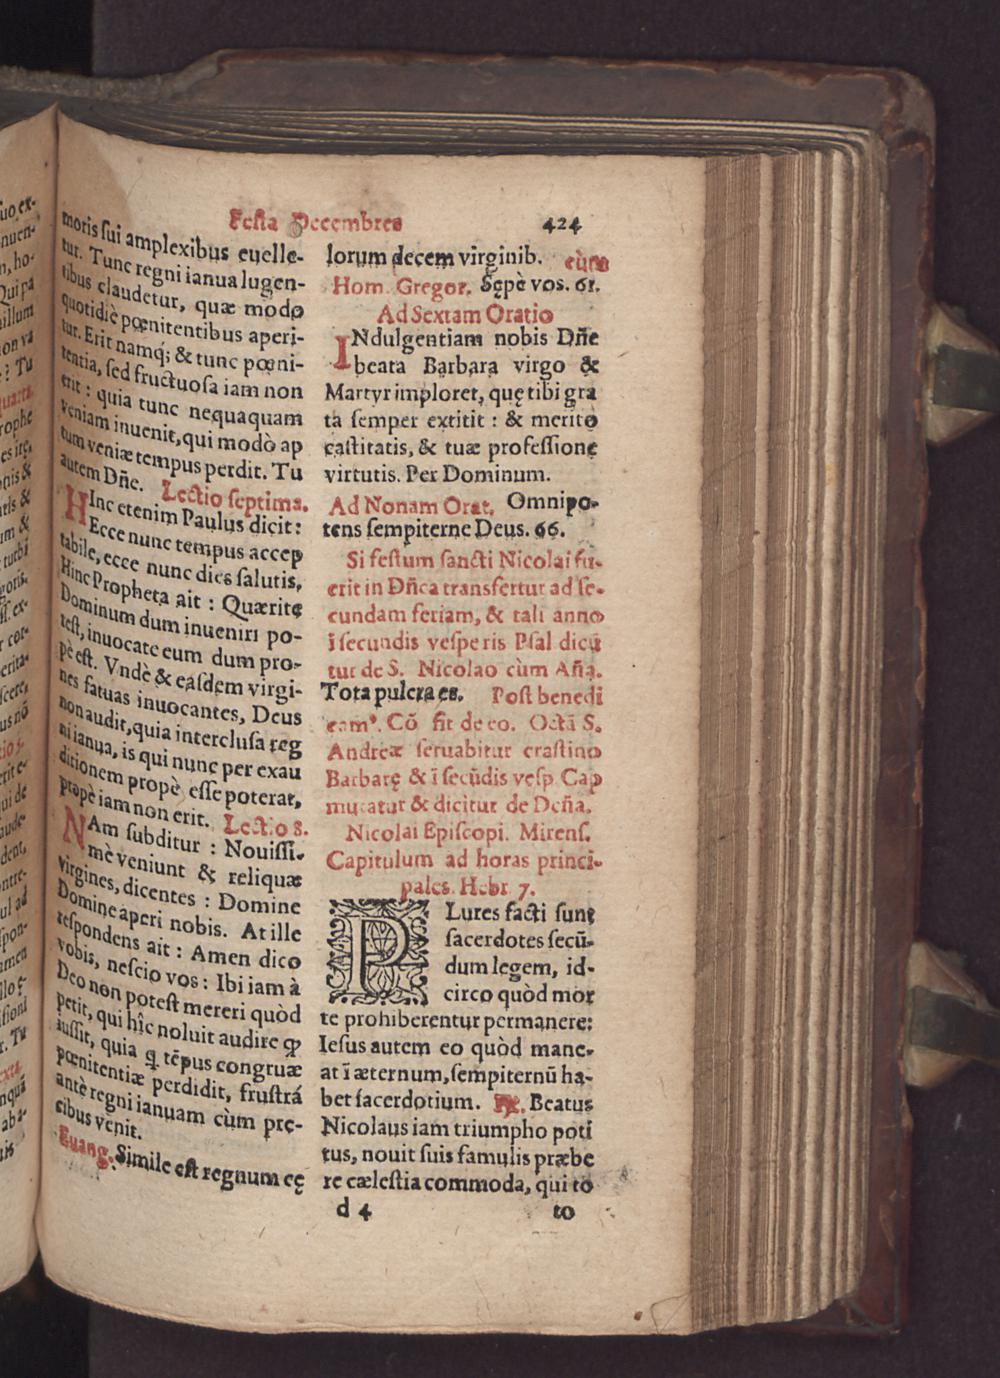 Festa Decembres 424
moris sui amplexibus euelle-
tur. Tunc regni ianua lugen-
tibus claudetur, quæ modo
quotidiè pœnitentibus aperi-
tur. Erit namq́; & tunc pœni-
tentia, sed fructuosa iam non
erit : quia tunc nequaquam
veniam inuenit, qui modò ap
tum veniæ tempus perdit. Tu
autem Dñe. Lectio septima.
HInc etenim Paulus dicit:
Ecce nunc tempus accep
tabile, ecce nunc dies salutis,
Hinc Propheta ait : Quærite
Dominum dum inueniri po-
test, inuocate eum dum pro-
pè est. Vndè & easdem virgi-
nes fatuas inuocantes, Deus
non audit, quia interclusa reg
ni ianua, is qui nunc per exau
ditionem propè esse poterat,
propè iam non erit. Lectio 8.
NAm subditur : Nouissi-
mè veniunt & reliquæ
virgines, dicentes : Domine
Domine aperi nobis. At ille
respondens ait : Amen dico
vobis, nescio vos : Ibi iam à
Deo non potest mereri quòd
petit, qui hîc noluit audire ꝙ
iussit, quia q tēpus congruæ
pœnitentiæ perdidit, frustrá
antè regni ianuam cùm prę-
cibus venit.
Euang. Simile est regnum cę
lorum decem virginib. cùm
Hom. Gregor. Sępè vos. 61.
Ad Sextam Oratio
INdulgentiam nobis Dñe
beata Barbara virgo &
Martyr imploret, quę tibi gra
ta semper extitit : & merito
castitatis, & tuæ professione
virtutis. Per Dominum.
Ad Nonam Orat. Omnipo-
tens sempiterne Deus. 66.
Si festum sancti Nicolai fu-
erit in Dñca transfertur ad se-
cundam feriam, & tali anno
ī secundis vesperis Psal dicū
tur de S. Nicolao cùm Aña.
Tota pulcra es. Post benedi
cam⁹. Cō fit de eo. Octā S.
Andreæ seruabitur crastino
Barbarę & ī secūdis vesp Cap
mutatur & dicitur de Dcña.
Nicolai Episcopi. Mirens.
Capitulum ad horas princi-
pales. Hebr 7.
PLures facti sunt
sacerdotes secū-
dum legem, id-
circo quòd mor
te prohiberentur permanere:
Iesus autem eo quòd mane-
at ī æternum, sempiternū ha-
bet sacerdotium. ℟. Beatus
Nicolaus iam triumpho poti
tus, nouit suis famulis præbe
re cælestia commoda, qui to
d 4 to